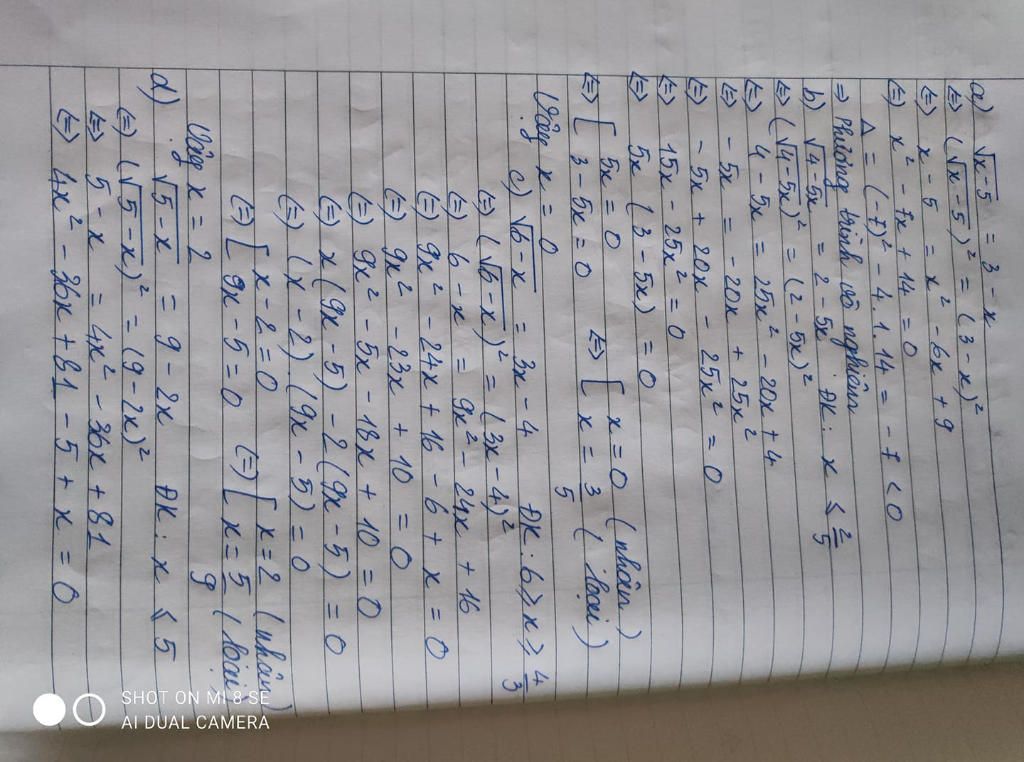 a) √(x-5) = 3 - x
⇔ (√(x-5))² = (3-x)²
⇔ x - 5 = x² - 6x + 9
⇔ x² - 7x + 14 = 0
Δ = (-7)² - 4.1.14 = -7 < 0
⇒ Phương trình vô nghiệm
b) √(4-5x) = 2 - 5x ĐK: x ≤ 2/5
⇔ (√(4-5x))² = (2-5x)²
⇔ 4 - 5x = 25x² - 20x + 4
⇔ - 5x = - 20x + 25x²
⇔ - 5x + 20x - 25x² = 0
⇔ 15x - 25x² = 0
⇔ 5x (3 - 5x) = 0
⇔ [ 5x = 0 ⇔ [ x = 0 (nhận)
3 - 5x = 0 x = 3/5 (loại)
Vậy x = 0
c) √(6-x) = 3x - 4 ĐK: 6 ≥ x ≥ 4/3
⇔ (√(6-x))² = (3x-4)²
⇔ 6 - x = 9x² - 24x + 16
⇔ 9x² - 24x + 16 - 6 + x = 0
⇔ 9x² - 23x + 10 = 0
⇔ 9x² - 5x - 18x + 10 = 0
⇔ x(9x - 5) - 2(9x - 5) = 0
⇔ (x - 2).(9x - 5) = 0
⇔ [ x - 2 = 0 ⇔ [ x = 2 (nhận)
9x - 5 = 0 x = 5/9 (loại)
Vậy x = 2
d) √(5-x) = 9 - 2x ĐK: x ≤ 5
⇔ (√(5-x))² = (9-2x)²
⇔ 5 - x = 4x² - 36x + 81
⇔ 4x² - 36x + 81 - 5 + x = 0
SHOT ON MI 8 SE
AI DUAL CAMERA